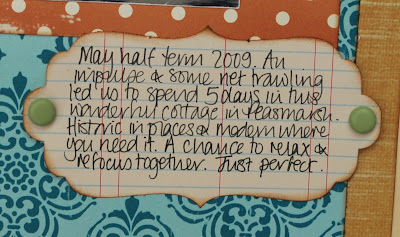 May half term 2009. An
impulse & some net trawling
led us to spend 5 days in this
wonderful cottage in Peasmarsh.
Historic in places & modern where
you need it. A chance to relax &
refocus together. Just perfect.